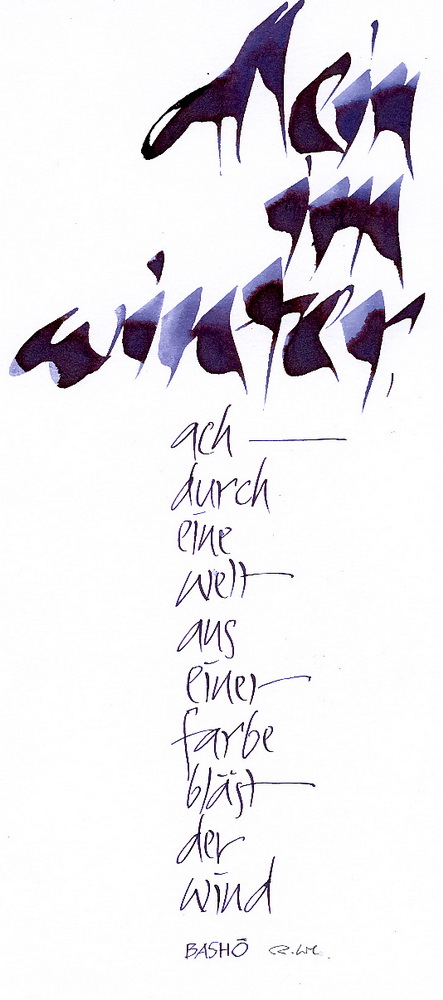 Allein
im
winter,
ach —
durch
eine
welt
aus
einer
farbe
bläst
der
wind
BASHŌ